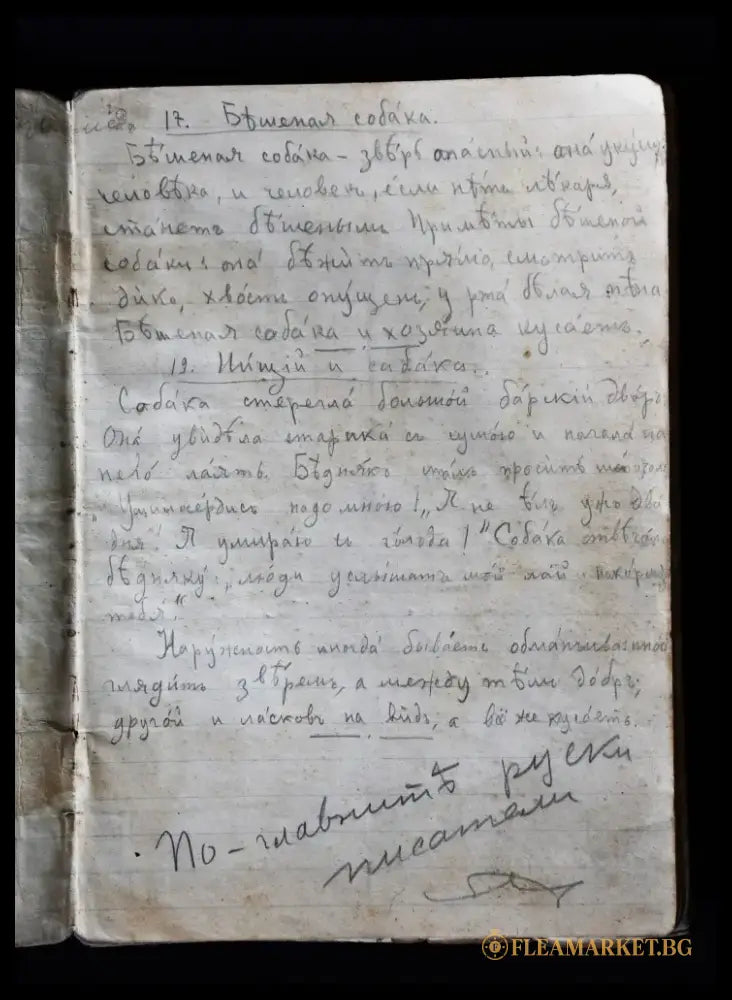 17. Бѣшеная соба́ка.
Бѣ́шеная соба́ка – звѣрь опа́сный: она́ уку́ш
человѣ́ка, и человек, е́сли нѣтъ лѣ́каря,
ста́нетъ бѣ́шенымъ Примѣ́ты бѣ́шеной
соба́ки: она́ бѣжи́тъ пря́мо, смо́тритъ
ди́ко, хвостъ опу́щен, у рта бѣ́лая пѣ́на
Бѣ́шеная соба́ка и хозя́ина куса́етъ.
19. Ни́щій и саба́ка.
Саба́ка стерегла́ большо́й ба́рскій дворъ
Она́ уви́дѣла старика́ съ сумо́ю и начала́ на
него́ ла́ять. Бѣдня́къ сталъ проси́ть
„Умилосе́рдись надо мно́ю! „Я не ѣлъ ужъ два
дня! Я умира́ю съ го́лода!" Соба́ка отвѣча́
бѣдняку́: „лю́ди услы́шатъ мой лай
тебя́."
Нару́жность иногда́ быва́етъ обма́нчива: ино́й
гляди́тъ звѣ́ремъ, а между тѣмъ добръ;
друго́й и ла́сковъ на видъ, а всё же куса́етъ.
По-главнитѣ руски
писатели
FLEAMARKET.BG